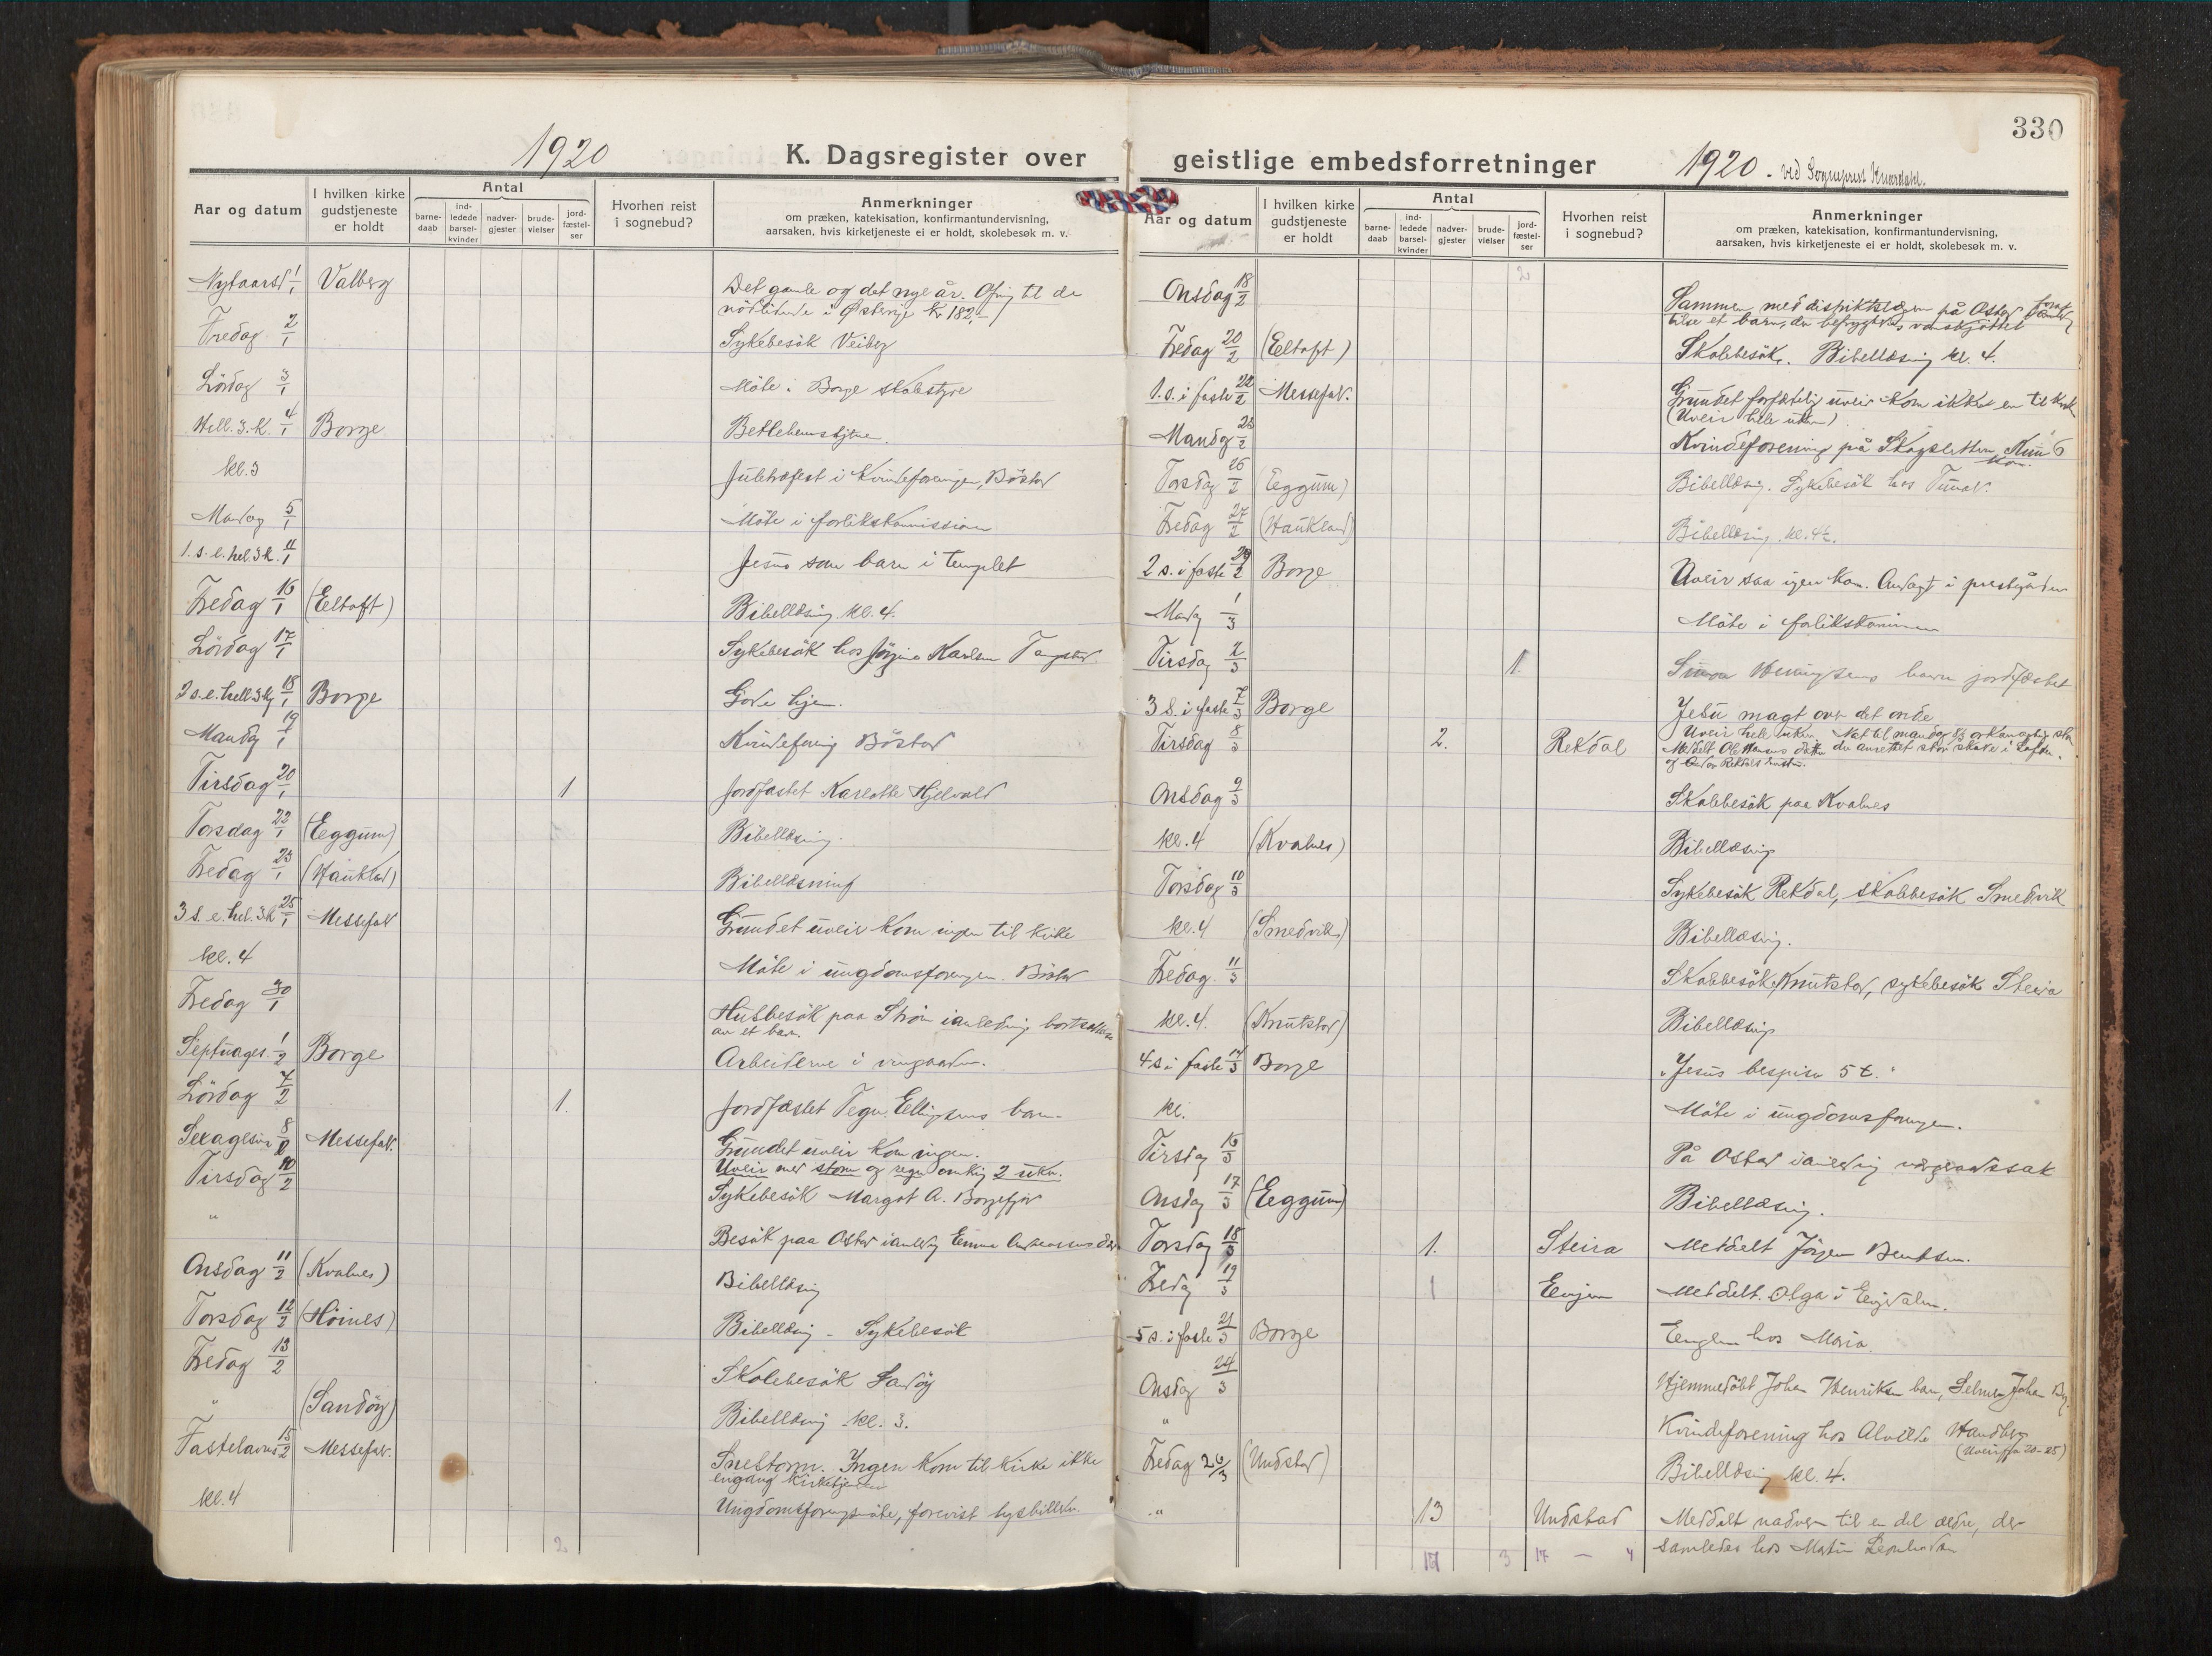 1920
K. Dagsregister over
Aar og datum
I hvilken kirke gudstjeneste er holdt
Antal
barne-daab
ind-ledede barsel-kvinder
nadver-gjester
brude-vielser
jord-fæstel-ser
Hvorhen reist i sognebud?
Anmerkninger
om præken, katekisation, konfirmantundervisning,
aarsaken, hvis kirketjeneste ei er holdt, skolebesøk m. v.
Nytaarsd 1/1 Valberg Det gamle og det nye år. Ofring til de
nödlidende i Østerige kr 182,-
Fredag 2/1 Sykebesök Veiberg
Lördag 3/1 Möte i Borge skolestyre
Hell. 3. K. 4/1 Borge Betlehemstjernen.
kl. 3 Juletræfest i Kvindeforeningen, Böstad
Mandag 5/1 Möte i forlikskommissionen
1. s. e. hel. 3 k. 11/1 Jesus som barn i templet
Fredag 16/1 (Eltoft) Bibellæsning kl. 4.
Lördag 17/1 Sykebesök hos Jörgine Karlsen Tangstad
2 s. e. hell 3 kg 18/1 Borge Gode hjem.
Mandag 19/1 Kvindeforening Böstad
Tirsdag 20/1 1 Jordfæstet Karlotte Hjelvold
Torsdag 22/1 (Eggum) Bibellæsning.
Fredag 23/1 (Haukland) Bibellæsning
3 s. e. hel. 3 k 25/1 Messefald Grundet uveir kom ingen til kirke
kl. 4 Möte i ungdomsforeningen. Böstad
Fredag 30/1 Husbesök paa Ström i anledning bortsættelse
av et barn.
Septuages. 1/2 Borge Arbeiderne i vingaarden.
Lördag 7/2 1. Jordfæstet Tegn. Ellingsens barn
Sexagesima 8/2 Messefald. Grundet uveir kom ingen.
Uveir med storm og regn omkring 2 uker.
Tirsdag 10/2 Sykebesök Margot A. Borgefjor
" Besök paa Ostad i anledning Emma Andreassens död
Onsdag 11/2 (Kvalnes) Bibellæsning
Torsdag 12/2 (Höines) Bibellæsning - Sykebesök
Fredag 13/2 Skolebesök Sandöy
" (Sandöy) Bibellæsning kl. 3.
Fastelavns 15/2 Messefald. Snestorm. Ingen kom til kirke ikke
engang kirketjeneren
kl. 4 Ungdomsforeningsmöte, forevist lysbilleder.
2
330
geistlige embedsforretninger
1920 - ved Sogneprest
Aar og datum
I hvilken kirke gudstjeneste er holdt
Antal
barne-daab
ind-ledede barsel-kvinder
nadver-gjester
brude-vielser
jord-fæstel-ser
Hvorhen reist i sognebud?
Anmerkninger
om præken, katekisation, konfirmantundervisning,
aarsaken, hvis kirketjeneste ei er holdt, skolebesøk m. v.
2
Onsdag 18/2 Sammen med distriktslægen på Ostad
et barn, der befrygtedes vanskjöttet
Fredag 20/2 (Eltoft) Skolebesök. Bibellæsning kl. 4.
1. s. i faste 22/2 Messefald. Grundet forfærdelig uveir kom ikke en til kirke
(Uveir hele uken)
Mandag 23/2 Kvindeforening på Skagsletten. Kun 6
kom.
Torsdag 26/2 (Eggum) Bibellæsning. Sykebesök hos
Fredag 27/2 (Haukland) Bibellæsning kl. 4 1/2.
2 s. i faste 29/2 Borge Uveir saa ingen kom. Andagt i prestgården
Mandag 1/3 Möte i forlikskommissionen
Tirsdag 2/3 1. Henningsens barn jordfæstet
3 s. i faste 7/3 Borge Jesu magt over det onde
Uveir hele uken. Nat til mandag 8/3 orkanagtig storm
Tirsdag 8/3 2. Rekdal Meddelt Ole Hansens datter der anrettet stor skade i Lofoten.
og Andor Rekdals hustru.
Onsdag 9/3 Skolebesök paa Kvalnes
kl. 4 (Kvalnes) Bibellæsning
Torsdag 10/3 Sykebesök Rekdal, skolebesök Smedvik
kl. 4 (Smedvik) Bibellæsning.
Fredag 11/3 Skolebesök Knutstad, sykebesök Steira
kl. 4. (Knutstad) Bibellæsning
4 s. i faste 14/3 Borge "Jesus bespiser 5 t."
kl. Möte i ungdomsforeningen.
Tirsdag 16/3 På Ostad i anledning vergeraadssak
Onsdag 17/3 (Eggum) Bibellæsning.
Torsdag 18/3 1. Steira Meddelt Jörgen Bentsen.
Fredag 19/3 1 Evjen Meddelt Olga i Evjedalen.
5 s. i faste 21/3 Borge Engelen hos Maria.
Onsdag 24/3 Hjemmedöbt Johan Henriksens barn, Selmer Johan
" Kvindeforening hos Alvilde Handberg
(Uveir fra 20-25)
Fredag 26/3 (Undstad) Bibellæsning kl. 4.
" 13 Undstad Meddelt nadveren til en del ældre, der
17 3 17 - 4 samledes hos Martin Leonhardsen